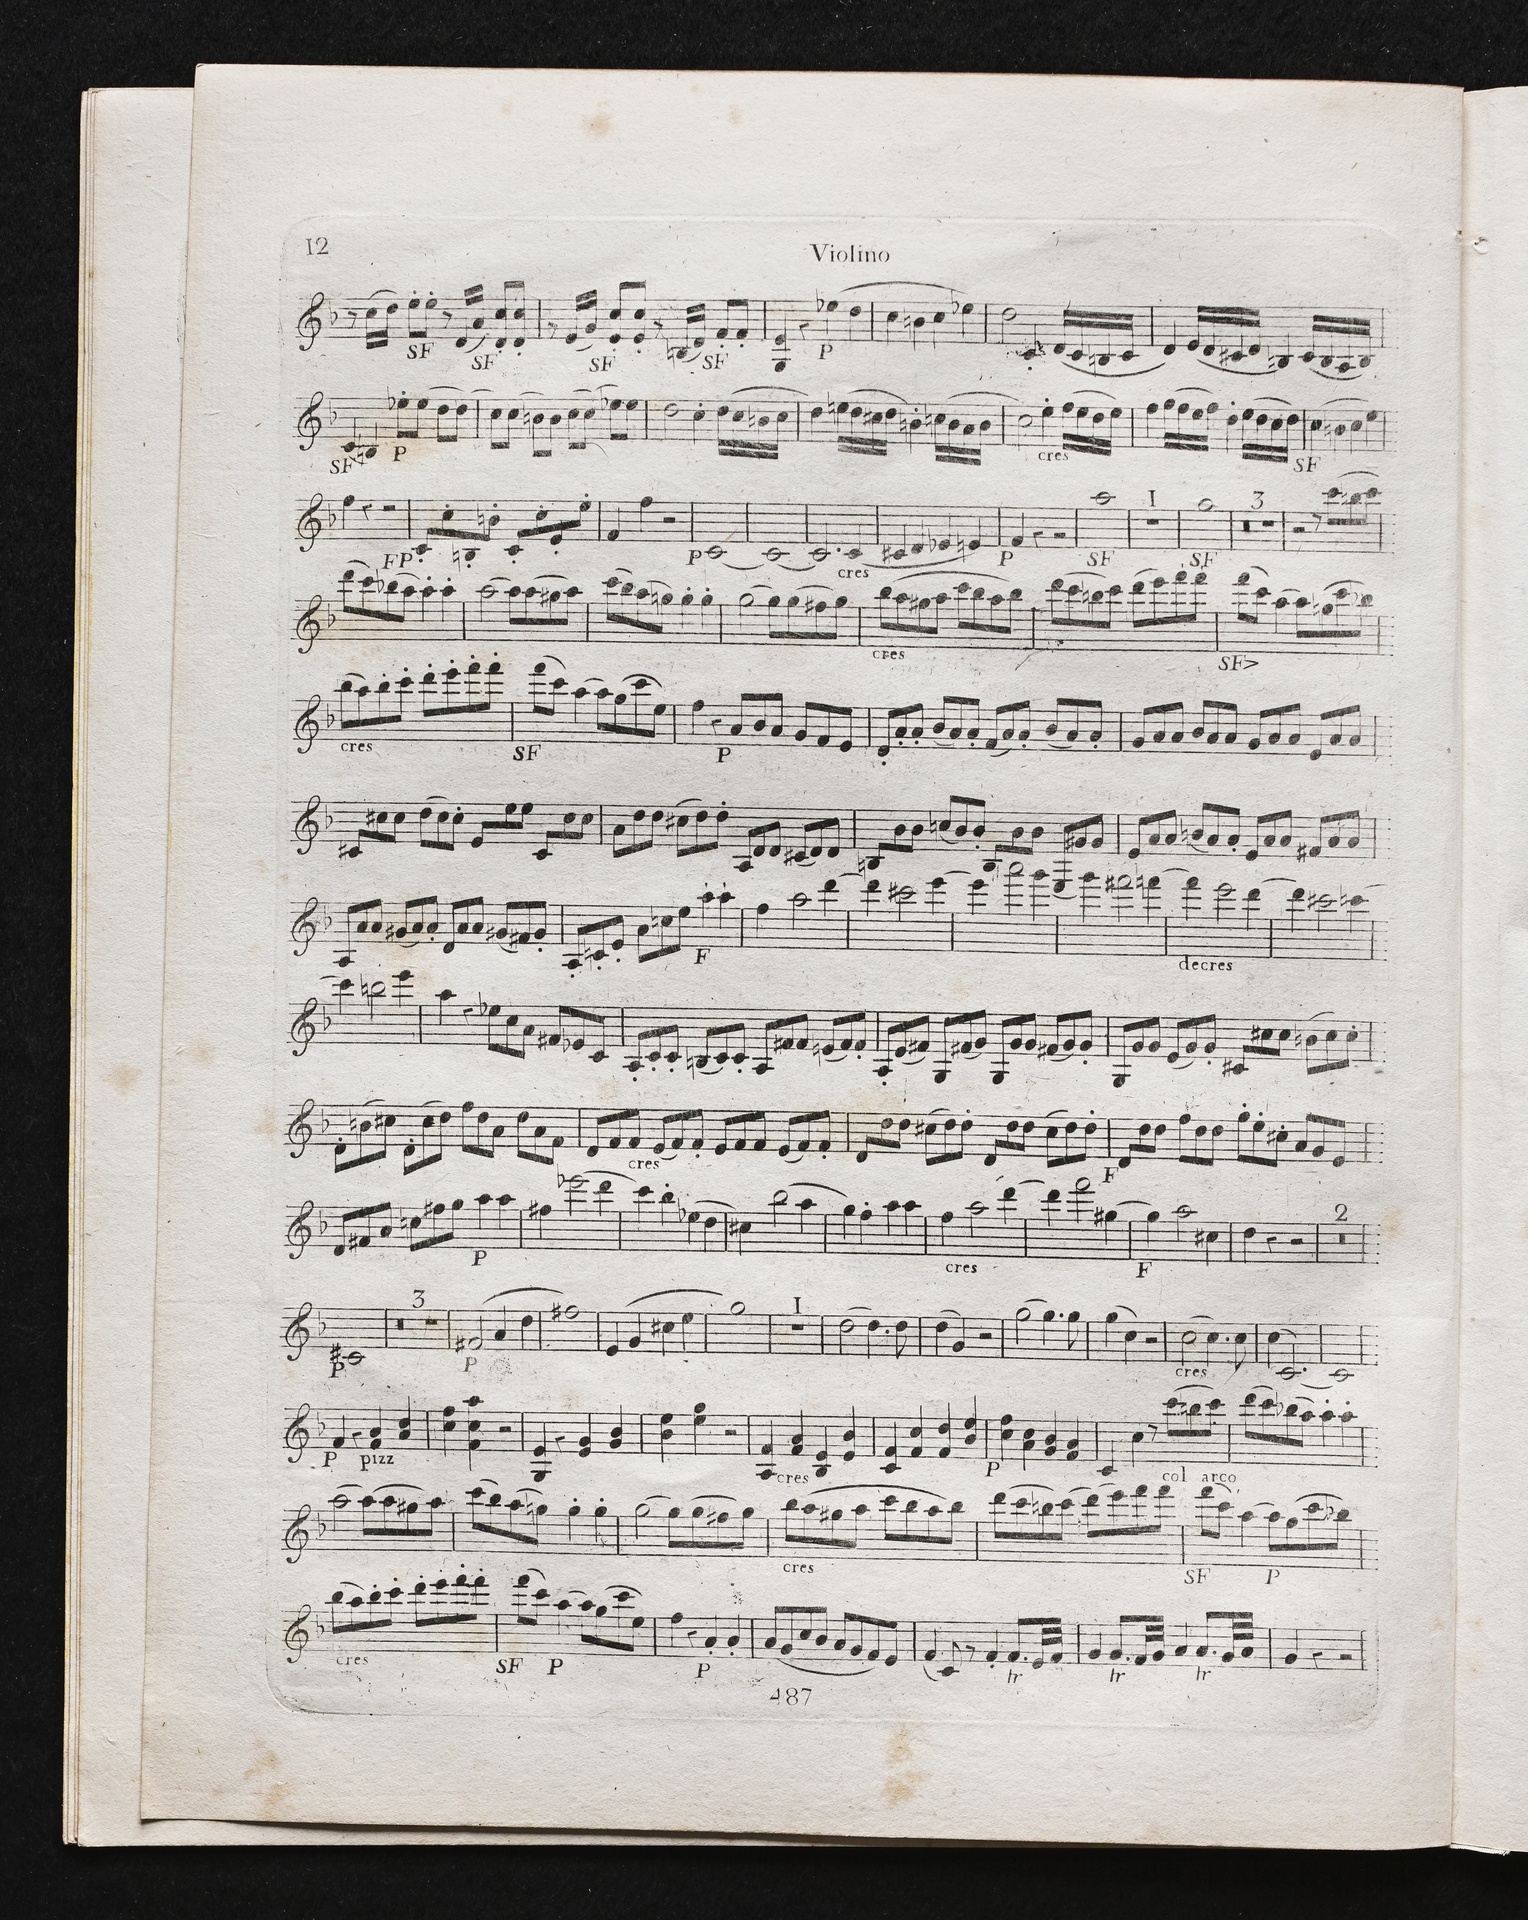 12
Violino
SF SF SF SF P
SF P cres SF
FP P cres P SF I SF 3
cres SF>
cres SF P
F decres
cres F
P cres F 2
P 3 P I cres
P pizz cres P col arco
cres SF P
cres SF P P tr tr tr
487